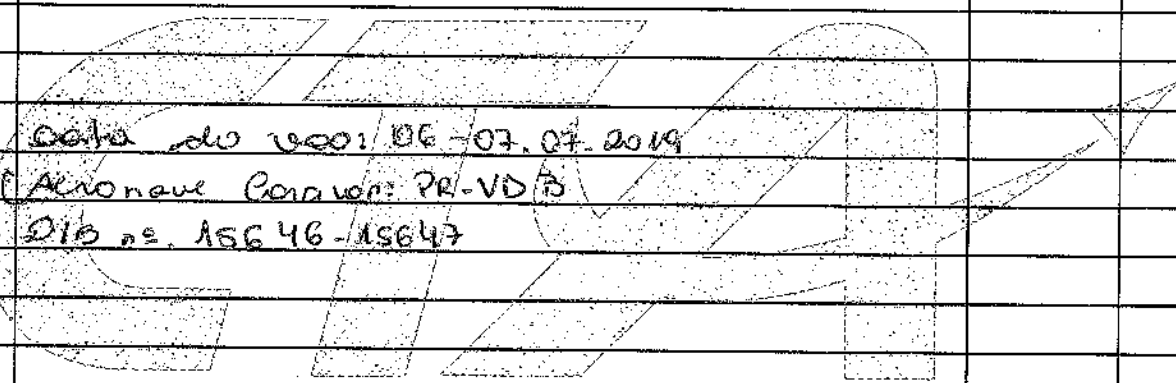 Data do voo: 06-07.07.2019
Aeronave Caravan: PR-VDB
D/B nº. 15646-15647